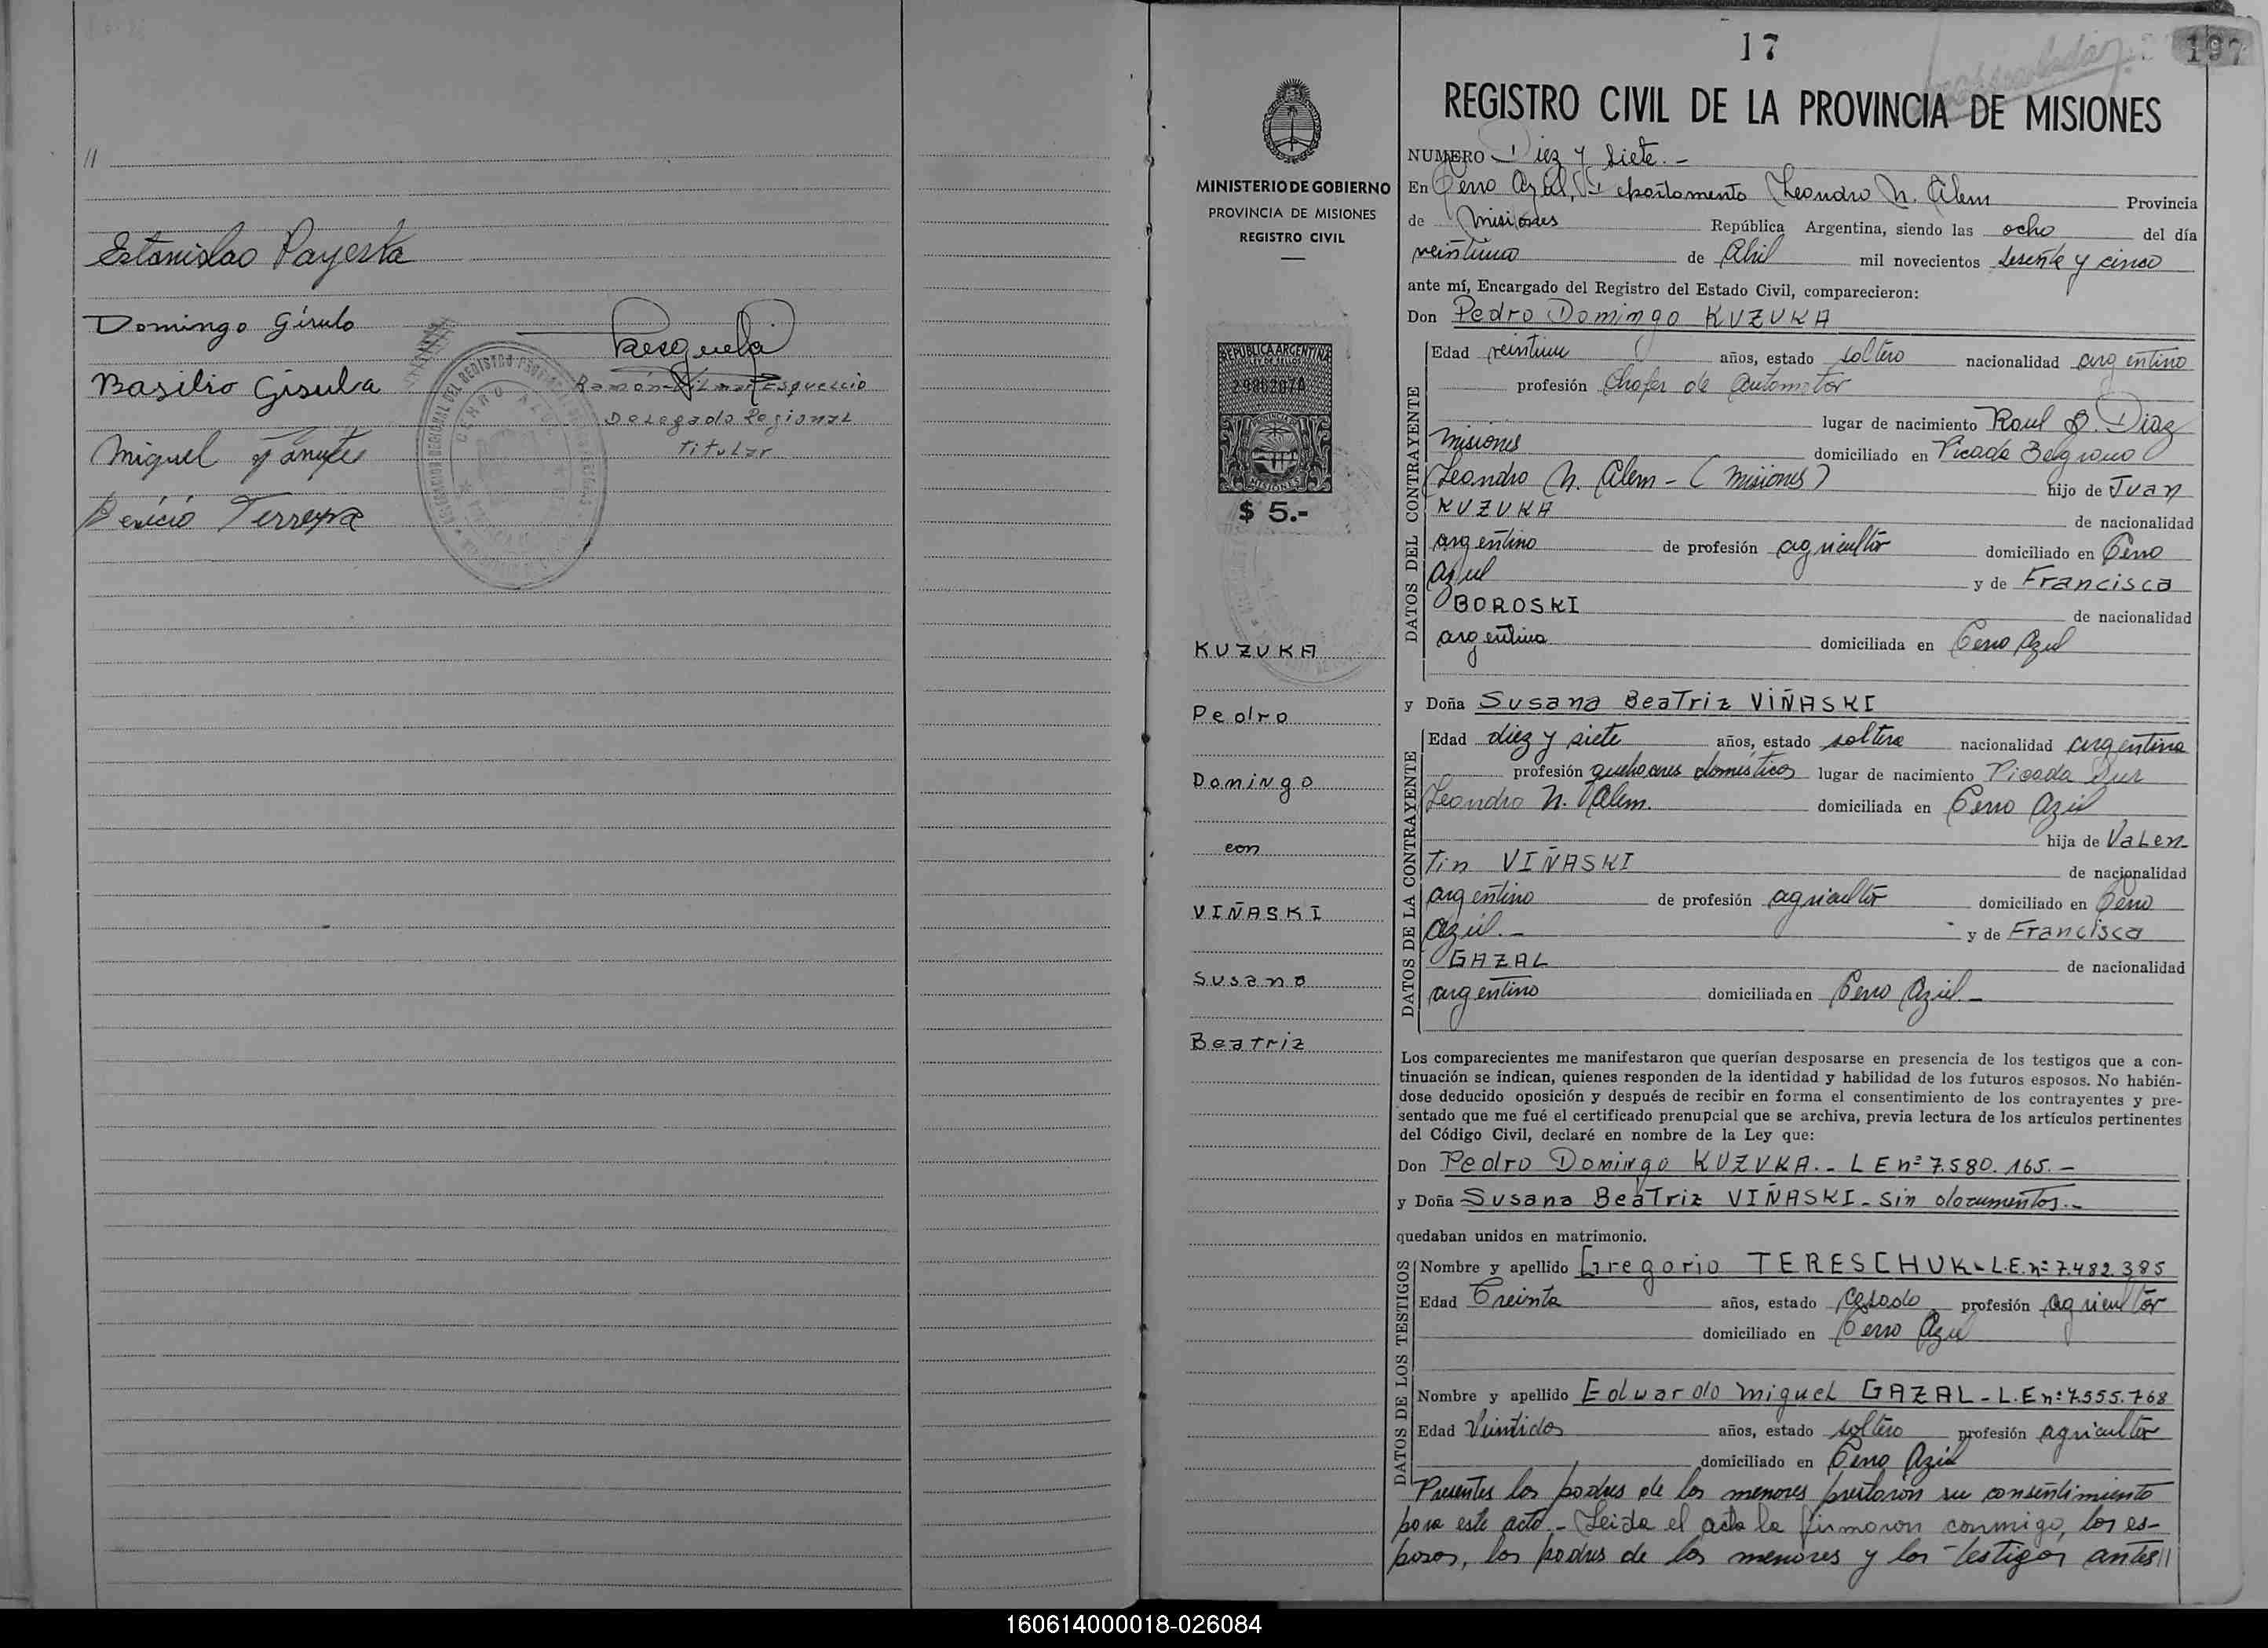 //
Estanislao Payeska
Domingo Girulo
Basilio Girula
Miguel
Ramón Esquercio
Delegado Regional
Titular
Terreyra
CERRO AZUL
17
197
REGISTRO CIVIL DE LA PROVINCIA DE MISIONES
MINISTERIO DE GOBIERNO
PROVINCIA DE MISIONES
REGISTRO CIVIL
REPUBLICA ARGENTINA
LEY DE SELLOS
MISIONES
$ 5.-
KUZUKA
Pedro
Domingo
con
VIÑASKI
Susana
Beatriz
NUMERO Diez y siete.-
En Cerro Azul, Departamento Leandro N. Alem Provincia
de Misiones República Argentina, siendo las ocho del día
veintiuno de Abril mil novecientos sesenta y cinco
ante mí, Encargado del Registro del Estado Civil, comparecieron:
Don Pedro Domingo KUZUKA
DATOS DEL CONTRAYENTE
Edad veintiun años, estado soltero nacionalidad argentino
profesión Chofer de automotor
lugar de nacimiento Raul B. Diaz
Misiones domiciliado en Picada Belgrano
Leandro N. Alem - (Misiones) hijo de Juan
KUZUKA de nacionalidad
argentino de profesión agricultor domiciliado en Cerro
Azul y de Francisca
BOROSKI de nacionalidad
argentina domiciliada en Cerro Azul
y Doña Susana Beatriz VIÑASKI
DATOS DE LA CONTRAYENTE
Edad diez y siete años, estado soltera nacionalidad argentina
profesión quehaceres domésticos lugar de nacimiento Picada Sur
Leandro N. Alem. domiciliada en Cerro Azul
hija de Valen
tin VIÑASKI de nacionalidad
argentino de profesión agricultor domiciliado en Cerro
Azul.- y de Francisca
GAZAL de nacionalidad
argentino domiciliada en Cerro Azul.-
Los comparecientes me manifestaron que querían desposarse en presencia de los testigos que a con-
tinuación se indican, quienes responden de la identidad y habilidad de los futuros esposos. No habién-
dose deducido oposición y después de recibir en forma el consentimiento de los contrayentes y pre-
sentado que me fué el certificado prenupcial que se archiva, previa lectura de los artículos pertinentes
del Código Civil, declaré en nombre de la Ley que:
Don Pedro Domingo KUZUKA.- L E nº 7.580.165.-
y Doña Susana Beatriz VIÑASKI - sin documentos.-
quedaban unidos en matrimonio.
DATOS DE LOS TESTIGOS
Nombre y apellido Gregorio TERESCHUK - L.E. nº 7.482.385
Edad Treinta años, estado casado profesión agricultor
domiciliado en Cerro Azul
Nombre y apellido Eduardo Miguel GAZAL - L.E nº 7.555.768
Edad Veintidos años, estado soltero profesión agricultor
domiciliado en Cerro Azul
Presentes los padres de los menores prestaron su consentimiento
para este acto.- Leida el acta la firmaron conmigo, los es-
posos, los padres de los menores y los testigos antes//
160614000018-026084